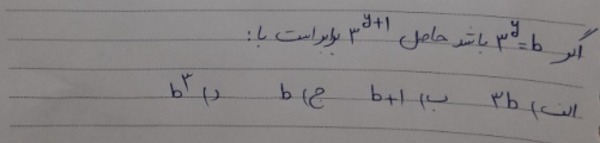 اگر ۳^y = b باشد حاصل ۳^{y+1} برابر است با:
الف) ۳b ب) b+1 ج) b د) b^۳